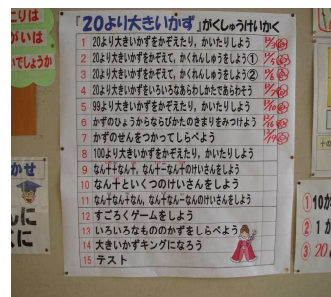 『20より大きいかず』がくしゅうけいかく
1 20より大きいかずをかぞえたり、かいたりしよう
2 20より大きいかずをかぞえて、かくれんぼをしよう①
3 20より大きいかずをかぞえて、かくれんぼをしよう②
4 20より大きいかずをいろいろなあらわしかたであらわそう
5 99より大きいかずをかぞえたり、かいたりしよう
6 かずのひょうからならびかたのきまりをみつけよう
7 かずのせんをつかってしらべよう
8 100より大きいかずをかぞえたり、かいたりしよう
9 なん十+なん十、なん十-なん十のけいさんをしよう
10 なん十といくつのけいさんをしよう
11 なん十なん+なん、なん十なん-なんのけいさんをしよう
12 すごろくゲームをしよう
13 いろいろなもののかずをしらべよう
14 大きいかずキングになろう
15 テスト
こりは
がいは
いでしょうか
かせ
①10が
②1が
③20